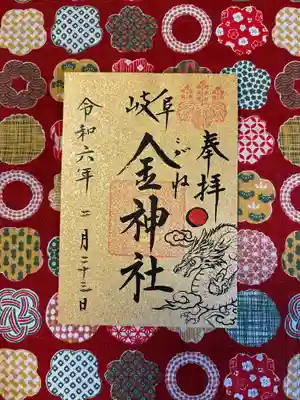 奉拝
岐阜
金神社
令和六年 二月二十三日